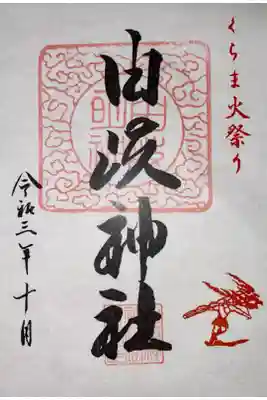 くらま火祭り
由岐神社
令和三年十月